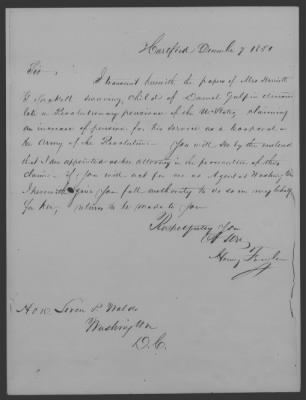 Hartford December 7 1850
Sir
I transmit herewith the papers of Mrs Harriett
surviving, Child of Daniel deceased
late a Revolutionary pensioner of the U. States, claiming
an increase of pension for his service as a Corporal in
the Army of the Revolution. You will see by the enclosed
that I am appointed as her attorney in the prosecution of this
claim - if you will act for me as Agent at Washington
I herewith give you full authority to do so in my behalf
for her, to be made to you
Respectfully Your
Henry
Hon Loren P Waldo
Washington
D.C.